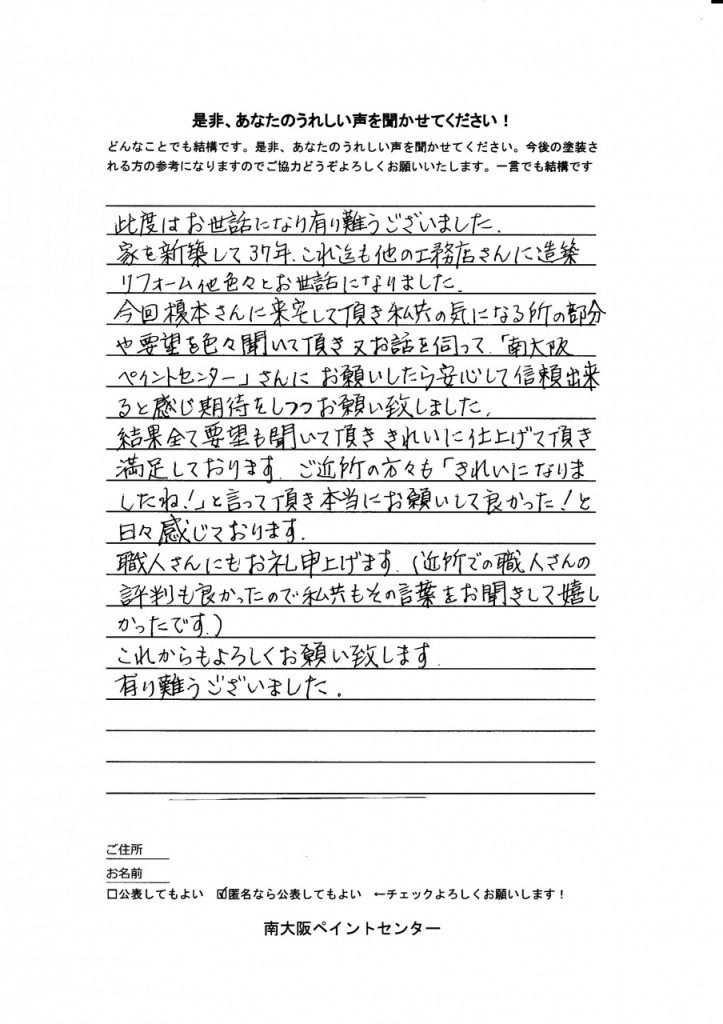 是非、あなたのうれしい声を聞かせてください！
どんなことでも結構です。是非、あなたのうれしい声を聞かせてください。今後の塗装さ
れる方の参考になりますのでご協力どうぞよろしくお願いいたします。一言でも結構です
此度はお世話になり有り難うございました.
家を新築して37年.これ迄も他の工務店さんに造築
リフォーム他色々とお世話になりました.
今回榎本さんに来宅して頂き私共の気になる所の部分
や要望を色々聞いて頂き又お話を伺って.「南大阪
ペイントセンター」さんに お願いしたら安心して信頼出来
ると感じ期待をしつつお願い致しました.
結果全て要望も聞いて頂き きれいに仕上げて頂き
満足しております. ご近所の方々も「きれいになりま
したね!」と言って頂き本当にお願いして良かった!と
日々感じております.
職人さんにもお礼申上げます.(近所での職人さんの
評判も良かったので私共もその言葉をお聞きして嬉し
かったです.)
これからもよろしくお願い致します.
有り難うございました.
ご住所
お名前
□公表してもよい ☑匿名なら公表してもよい ←チェックよろしくお願いします！
南大阪ペイントセンター